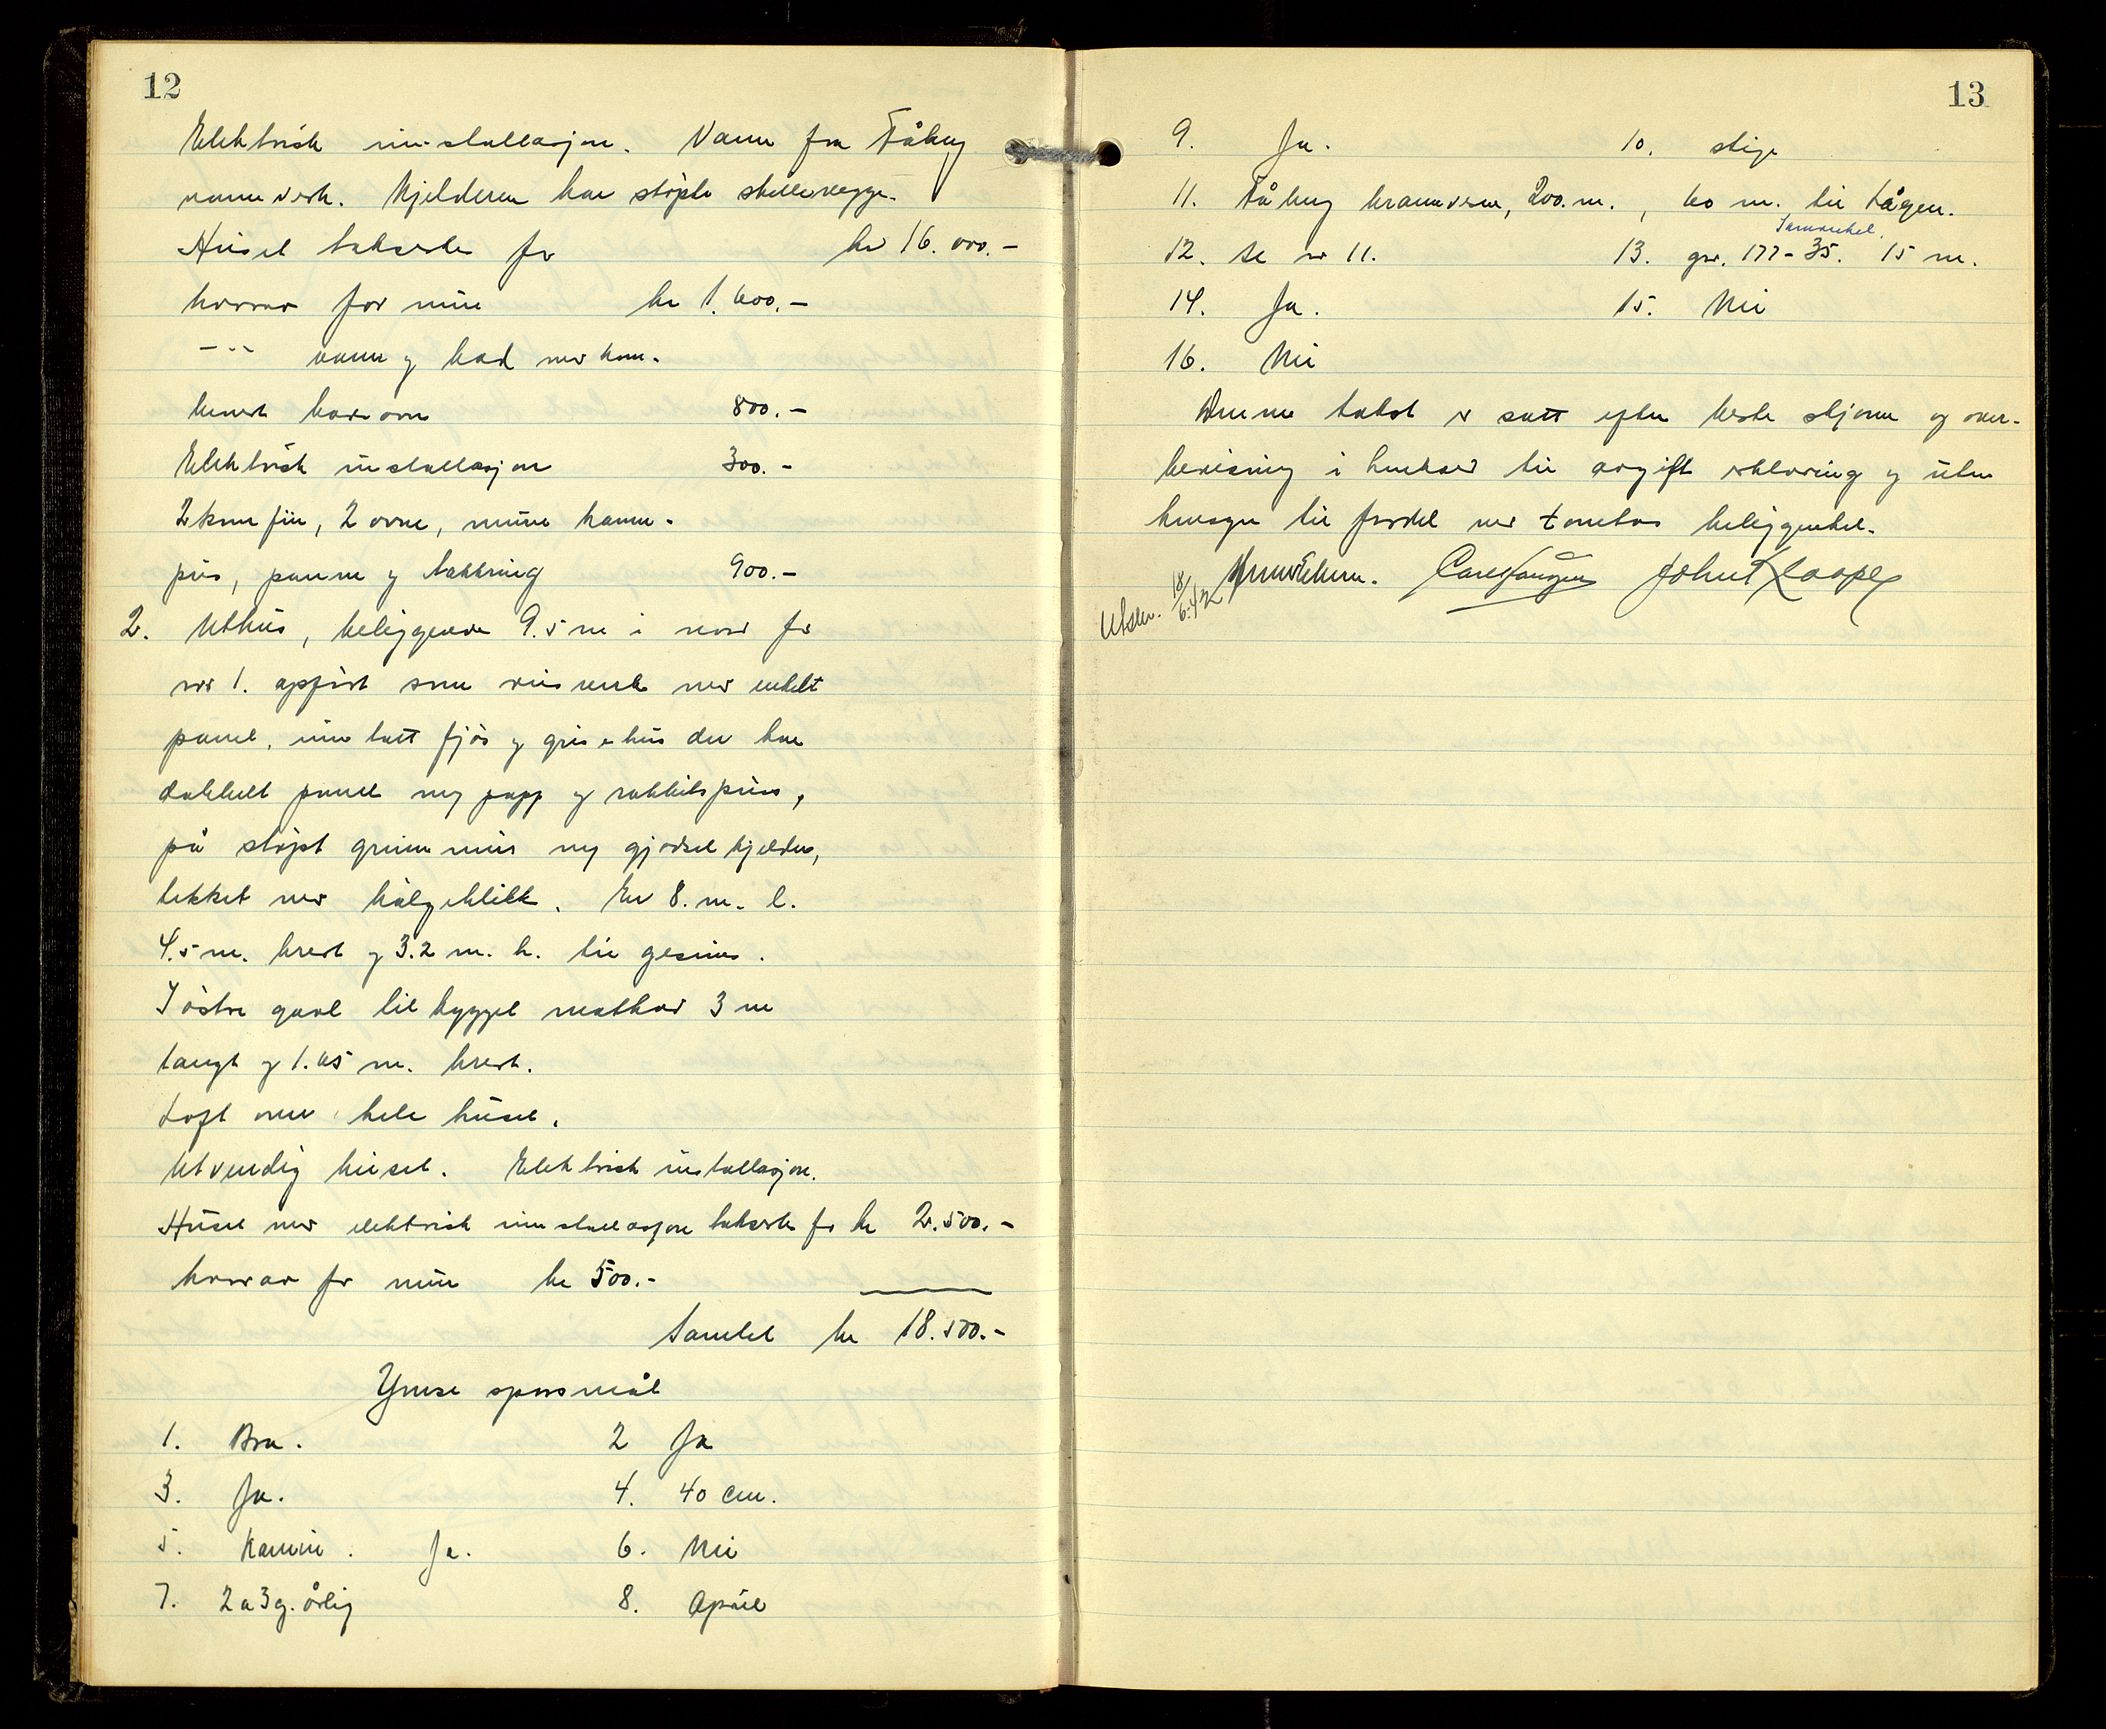 12
Elektrisk innstallasjon. Vann fra Fåberg
vannverk. Kjelderen har støpte skillevegge.
Huset takseres for kr 16.000.-
hvorav for mur kr 1.600.-
-"- vann og bad med kom-
binert badeovn 800.-
Elektrisk installasjon 300.-
2 komfür, 2 ovne, murer kamin-
pus, panne og taktring 900.-
2. Uthus, beliggende 9.5 m i nord for
nr 1. oppført som reisverk med enkelt
panel, unntatt fjøs og grisehus der har
dobbelt panel m/ papp og rabbitspuss,
på støpt grunnmur m/ gjødselkjelder,
tekket med bølgeblikk. Er 8. m. l.
4.5 m. bred og 3.2 m. h. til gesims.
I østre gavl tilbygget matbod 3 m
langt og 1.65 m. bred.
Loft over hele huset.
Utvendig beiset. Elektrisk installasjon.
Huset med elektrisk innstallasjon takseres for kr 2.500.-
hvorav for mur kr 500.-
Samlet kr 18.500.-
Ymse spørsmål
1. Bra. 2 Ja
3. Ja. 4. 40 cm.
5. Kamin. Ja. 6. Nei
7. 2 a 3 g. årlig 8. April
13
9. Ja. 10. stige
11. Fåberg brannvern, 200. m., 60 m. til Lågen.
Tømmerhel.
12. Se nr 11. 13. gnr. 177-35. 15 m.
14. Ja. 15. Nei
16. Nei
Denne takst er satt efter beste skjønn og over-
bevisning i henhold til avgitt erklæring og uten
hensyn til fordel ved tomtens beliggenhet.
Carl Haugen John Kloope
Utskr. 18/6.42